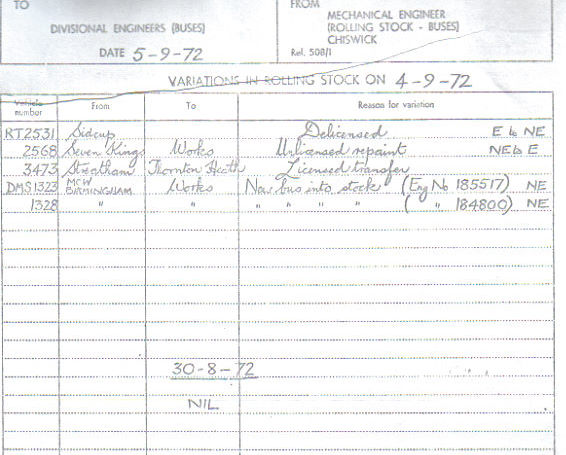 TO
DIVISIONAL ENGINEERS (BUSES)
DATE 5-9-72
FROM
MECHANICAL ENGINEER
(ROLLING STOCK - BUSES)
CHISWICK
Ref. 508/1
VARIATIONS IN ROLLING STOCK ON 4-9-72
Vehicle number From To Reason for variation
RT2531 Sidcup Delicensed E to NE
2568 Seven Kings Works Unlicensed repaint NE to E
3473 Streatham Thornton Heath Licensed transfer
DMS1323 MCW BIRMINGHAM Works New bus into stock (Eng No 185517) NE
1328 " " " " " " ( " 184800) NE
30-8-72
NIL